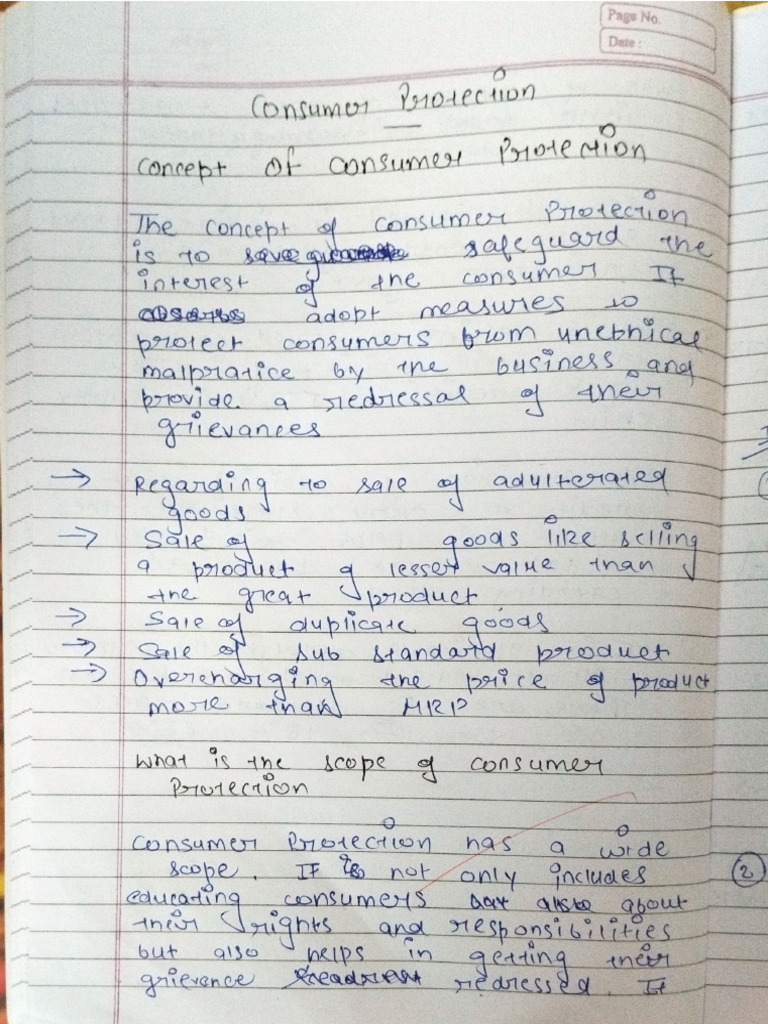 Page No.
Date :
Consumer Protection
Concept Of Consumer Protection
The concept of consumer Protection
is to safeguard the
interest of the consumer. It
adopt measures to
protect consumers from unethical
malpratice by the business and
provide a redressal of their
grievances
→ Regarding to sale of adulterated
goods
→ Sale of goods like selling
a product of lesser value than
the great product
→ Sale of duplicate goods
→ Sale of sub standard product
→ Overcharging the price of product
more than MRP
What is the scope of consumer
Protection
Consumer Protection has a wide
scope. It is not only includes
educating consumers about
their rights and responsibilities
but also helps in getting their
grievance redressed. It
2